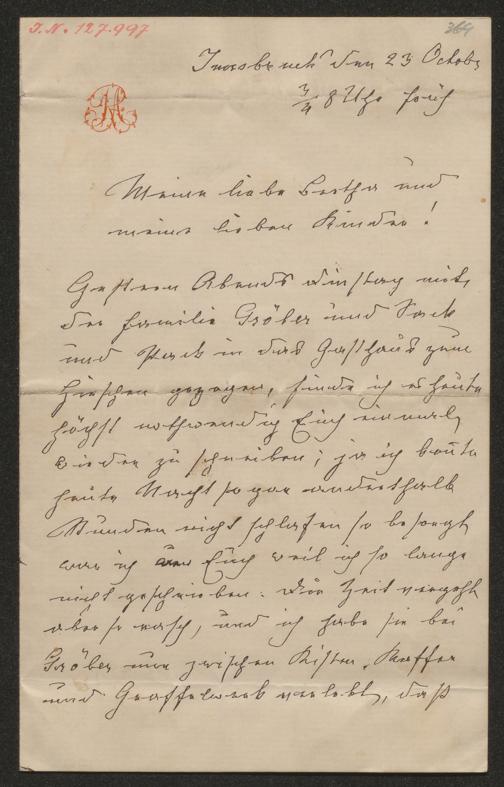 I.N. 127.997
364
Innsbruck den 23 Octobr
3/4 8 Uhr früh
Meine liebe Bertha und
meine lieben Kinder!
Gestern Abends Dinstag mit
der Familie Gröber und Sack
und Pack in das Gasthaus zum
Hirschen gezogen, finde ich es heute
höchst nothwendig Euch einmal
wieder zu schreiben; ja ich konnte
heute Nacht sogar anderthalb
Stunden nicht schlafen so besorgt
war ich um Euch weil ich so lange
nicht geschrieben. Die Zeit vergeht
aber so rasch, und ich habe sie bei
Gröber nur zwischen Kisten, Koffer
und Graffelwerk verlebt, daß